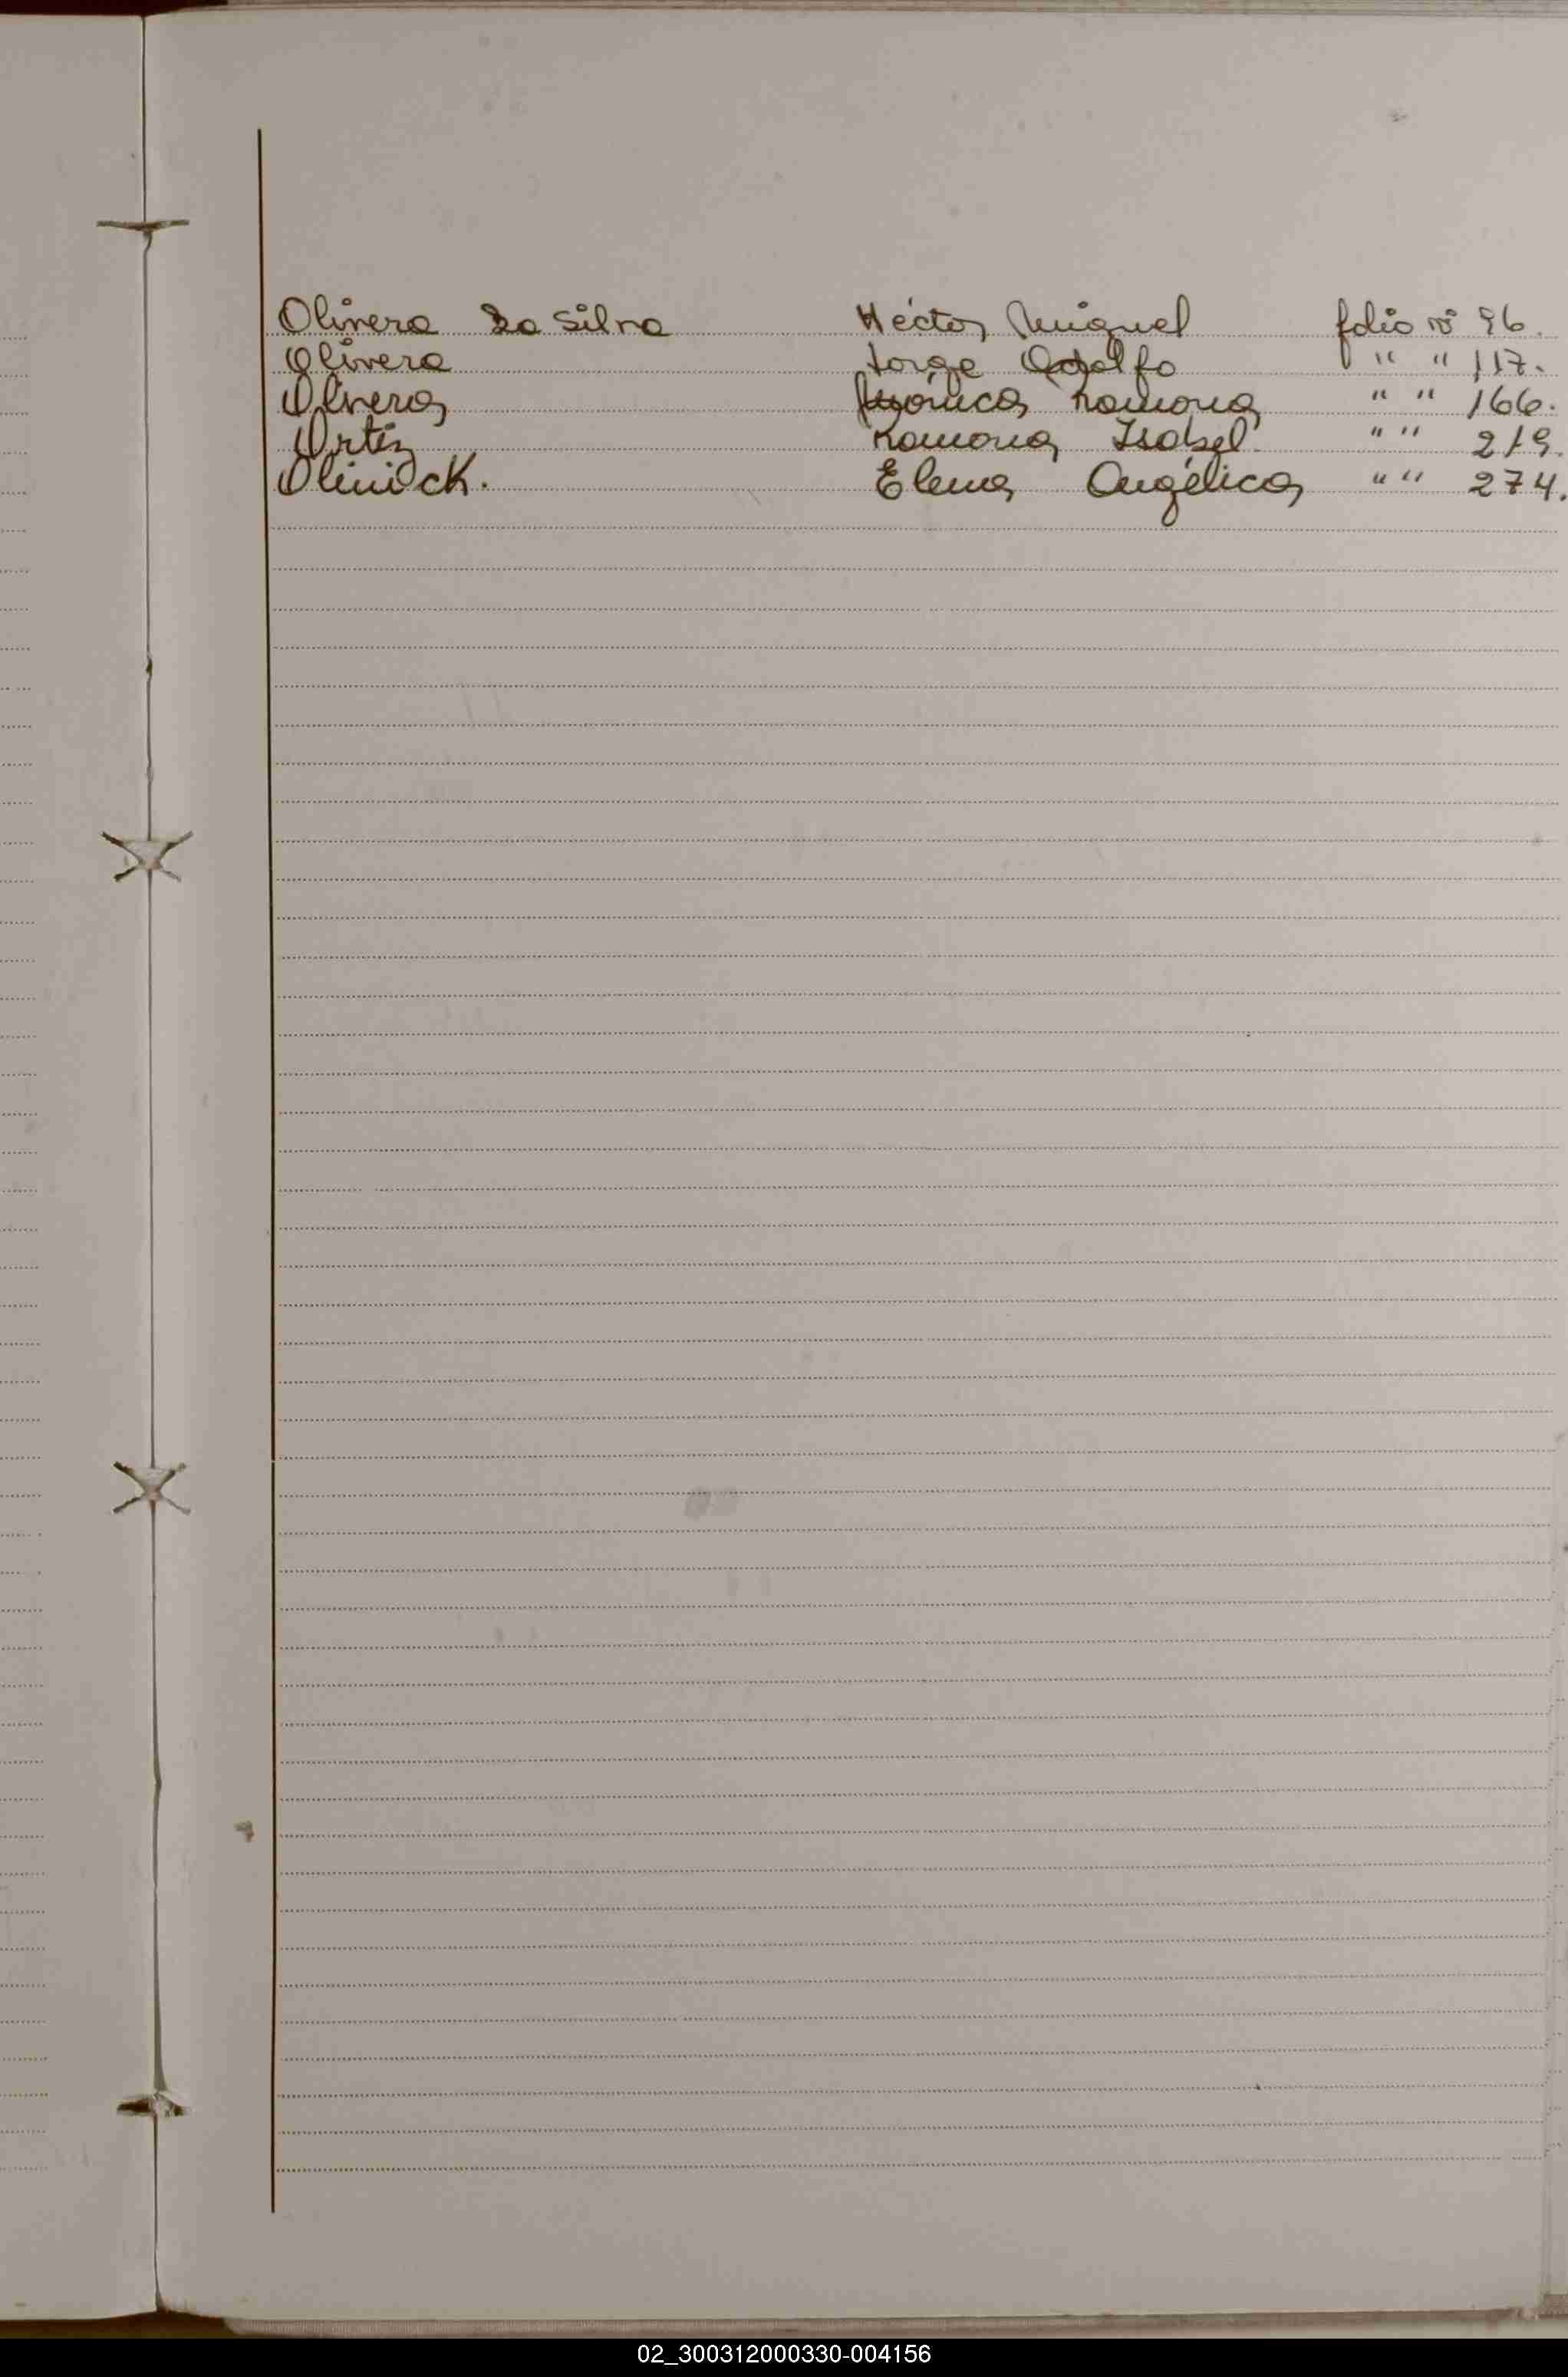 Olivera Da Silva Héctor Miguel folio nº 96.
Olivera Jorge Adolfo " " 117.
Olivera Mónica Ramona " " 166.
Ortíz Ramona Isabel " " 219.
Oliniock. Elena Angélica " " 274.
02_300312000330-004156